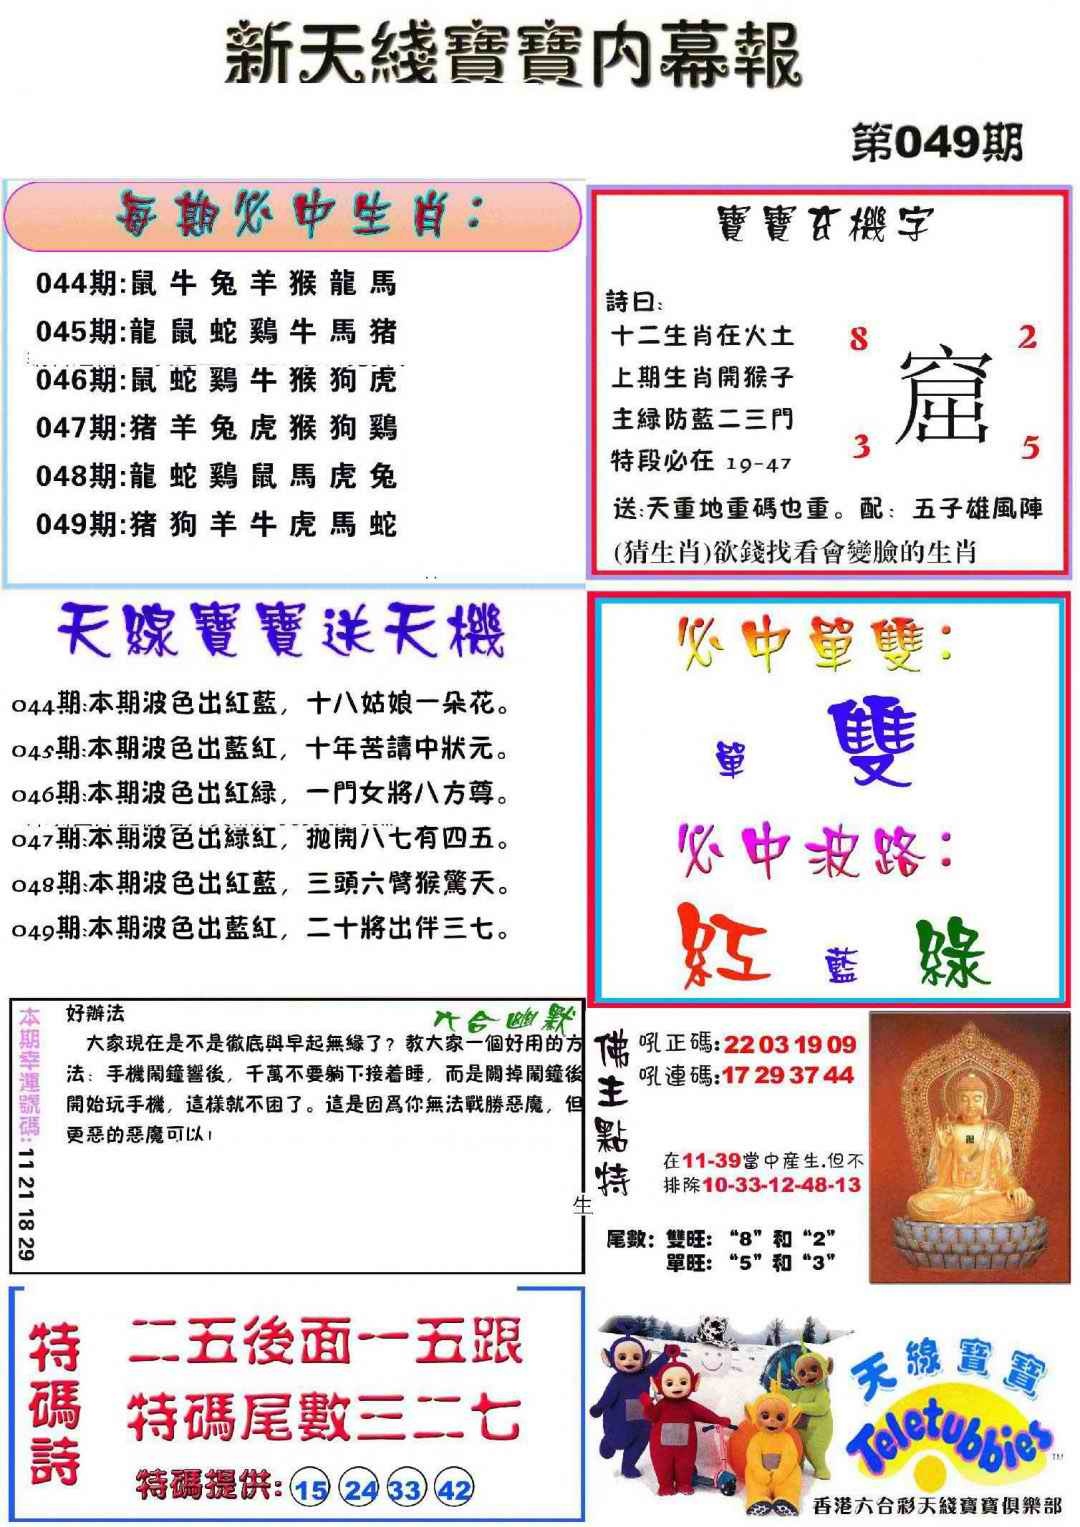 新天綫寶寶内幕報
第049期
每期必中生肖：
044期:鼠牛兔羊猴龍馬
045期:龍鼠蛇鷄牛馬猪
046期:鼠蛇鷄牛猴狗虎
047期:猪羊兔虎猴狗鷄
048期:龍蛇鷄鼠馬虎兔
049期:猪狗羊牛虎馬蛇
寶寶玄機字
詩曰:
十二生肖在火土
上期生肖開猴子
主緑防藍二三門
特段必在 19-47
8 2
窟
3 5
送:天重地重碼也重。配：五子雄風陣
(猜生肖)欲錢找看會變臉的生肖
天線寶寶送天機
044期:本期波色出紅藍，十八姑娘一朵花。
045期:本期波色出藍紅，十年苦讀中狀元。
046期:本期波色出紅緑，一門女將八方尊。
047期:本期波色出緑紅，拋開八七有四五。
048期:本期波色出紅藍，三頭六臂猴驚天。
049期:本期波色出藍紅，二十將出伴三七。
必中單雙：
單 雙
必中波路：
紅 藍 綠
本期幸運號碼: 11 21 18 29
六合幽默
好辦法
大家現在是不是徹底與早起無緣了？教大家一個好用的方
法：手機鬧鐘響後，千萬不要躺下接着睡，而是關掉鬧鐘後
開始玩手機，這樣就不困了。這是因爲你無法戰勝惡魔，但
更惡的惡魔可以！
生
佛主點特
吼正碼:22 03 19 09
吼連碼:17 29 37 44
在11-39當中産生.但不
排除10-33-12-48-13
尾數：雙旺：“8”和“2”
單旺：“5”和“3”
特碼詩
二五後面一五跟
特碼尾數三二七
特碼提供: 15 24 33 42
天線寶寶
Teletubbies
TM
香港六合彩天綫寶寶俱樂部